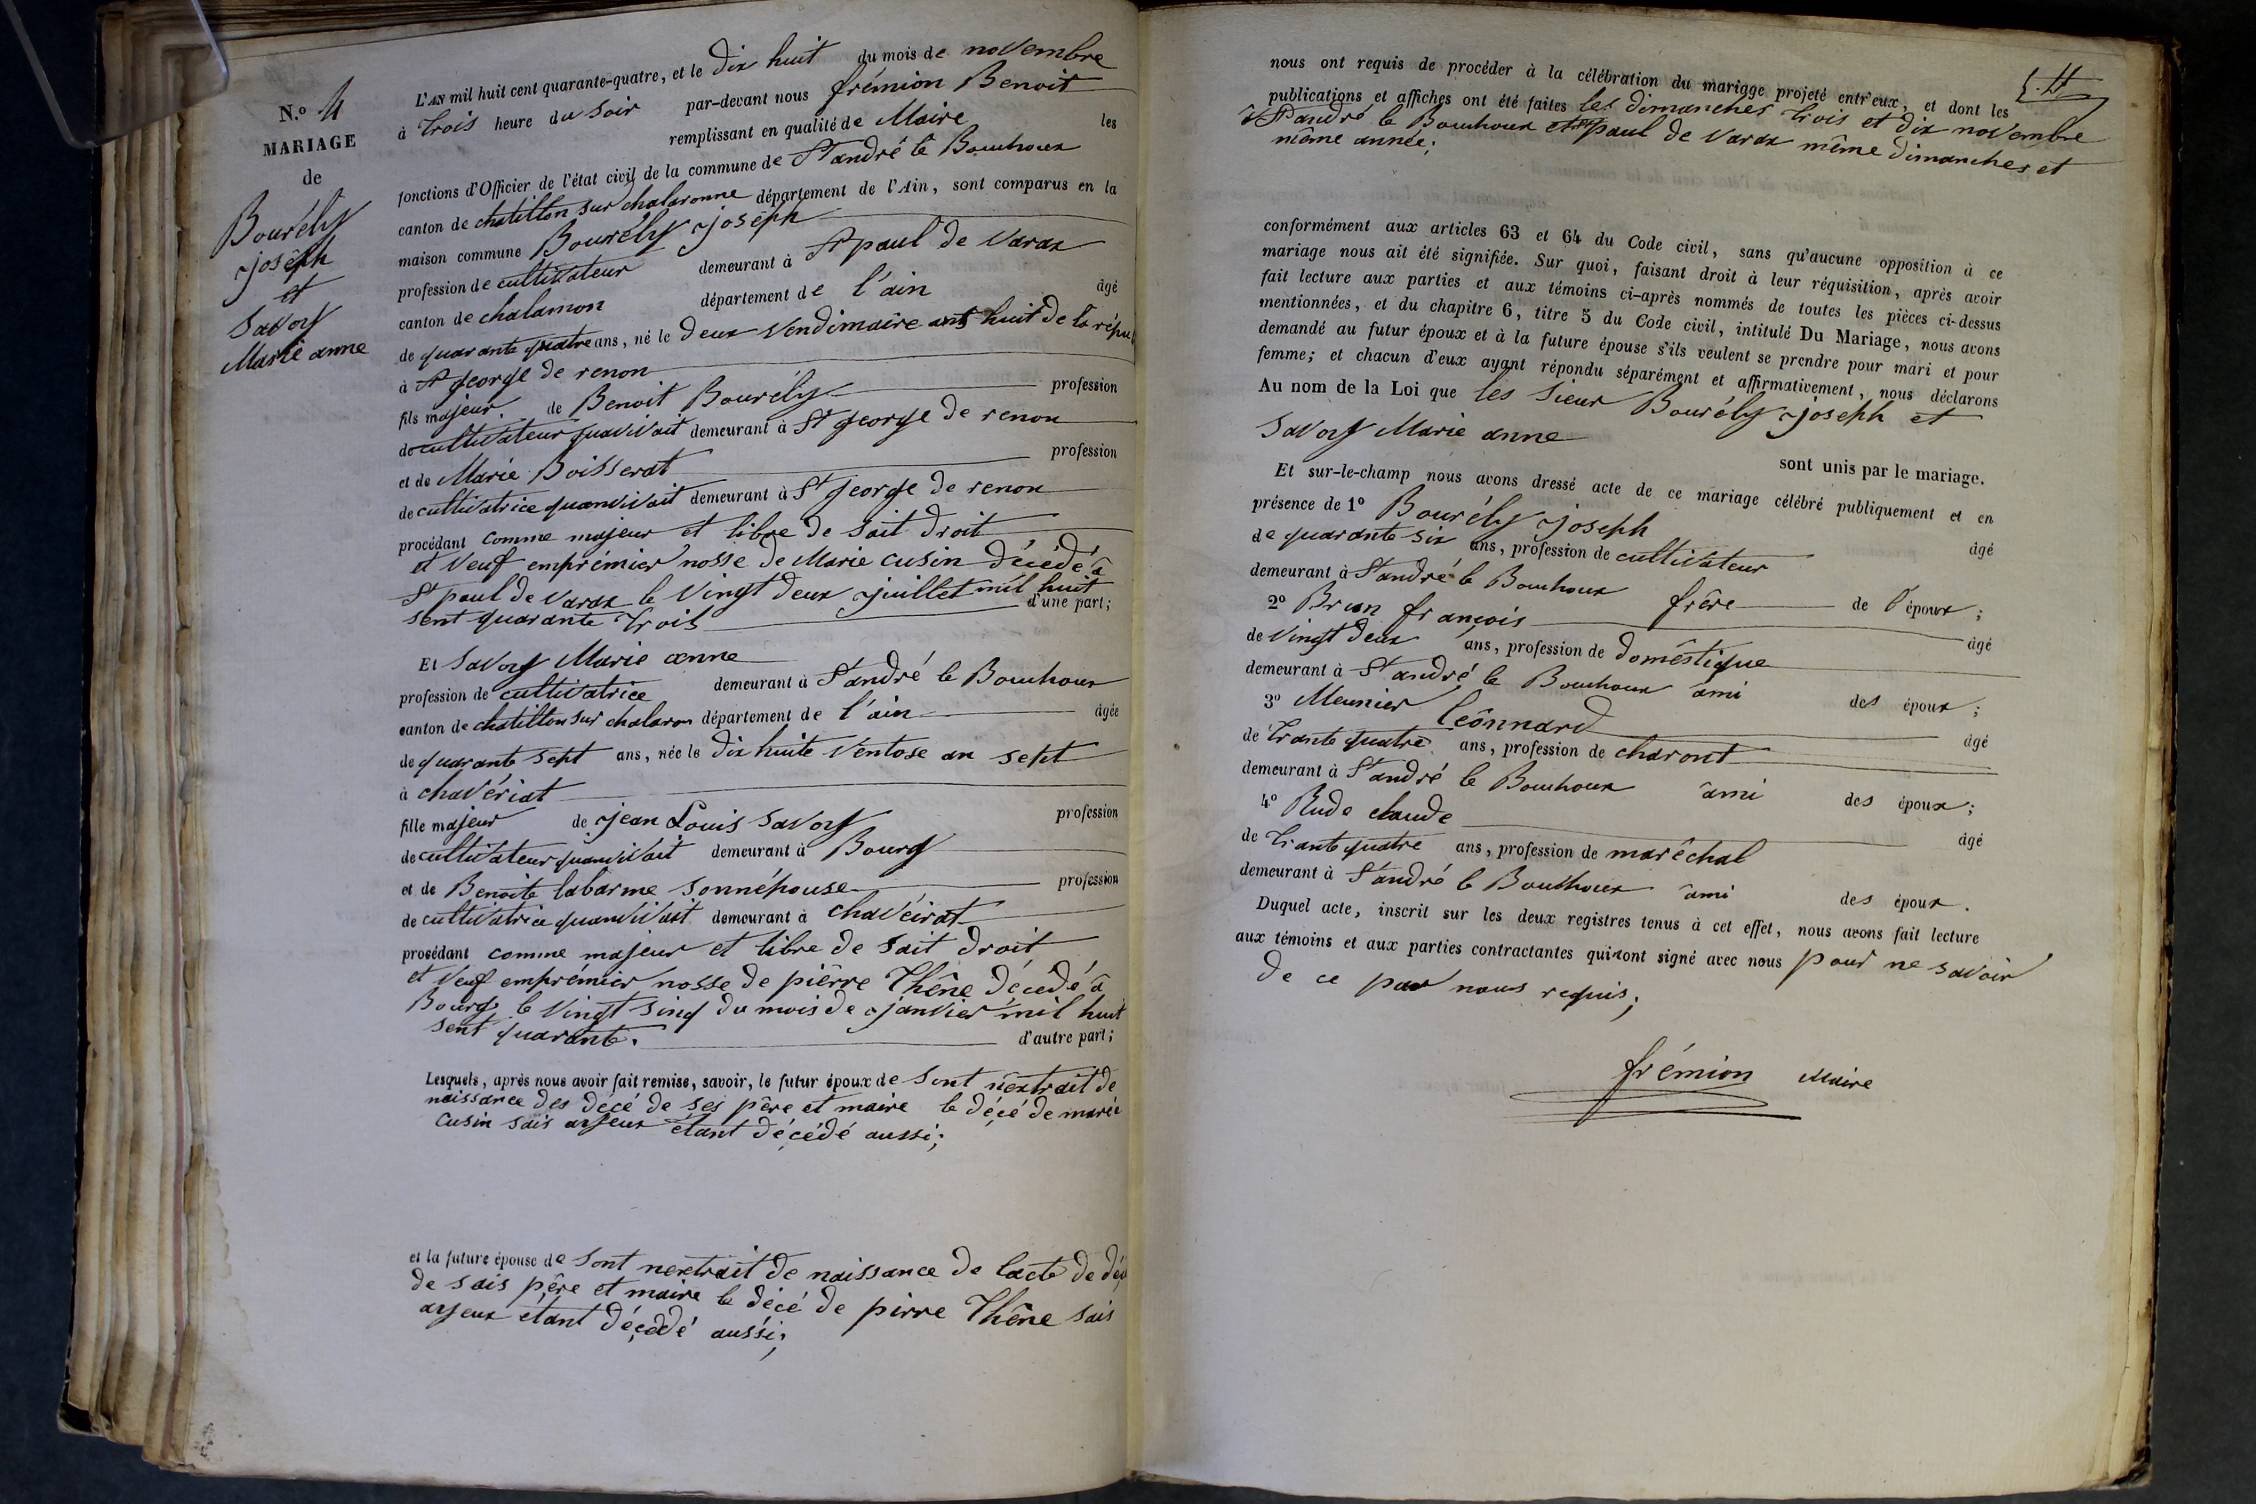 N.º 4
MARIAGE
de
Bourély
joseph
et
Savoy
Marie anne
L'AN mil huit cent quarante-quatre, et le dix huit du mois de novembre
à trois heure du soir par-devant nous frémion Benoit
remplissant en qualité de Maire les
fonctions d'Officier de l'état civil de la commune de St andré le Bouchoux
canton de chatillon sur chalaronne département de l'Ain, sont comparus en la
maison commune Bourély joseph
profession de cultivateur demeurant à St paul de Varax
canton de chalamon département de l'ain âgé
de quarante quatre ans, né le deux Vendimaire ant huit de la répu
à St george de renon
fils majeur de Benoit Bourély profession
de cultivateur quavivait demeurant à St george de renon
et de Marie Boisserat profession
de cultivatrice quanvivait demeurant à St george de renon
procédant comme majeur et libre de sait droit
et veuf emprémier nosse de Marie cusin décédé à
St paul de varax le vingt deux juillet mil huit
sent quarante trois d'une part;
Et Savoy Marie anne
profession de cultivatrice demeurant à St andré le Bouchoux
canton de chatillon sur chalaron département de l'ain âgée
de quarante sept ans, née le dix huite Ventose an sept
à chavériat
fille majeur de jean Louis Savoy profession
de cultivateur quanvivait demeurant à Bourg
et de Benoite labarme sonnépouse profession
de cultivatrice quanvivait demeurant à chavéirat
procédant comme majeur et libre de sait droit
et veuf emprémier nosse de pièrre Thêne décédé à
Bourg le vingt sinq du mois de janvier mil huit
sent quarante. d'autre part;
Lesquels, après nous avoir fait remise, savoir, le futur époux de sont nextrait de
naissance des décé de ses père et maire le décé de marie
cusin sais ayeux étant décédé aussi;
et la future épouse de sont nextrait de naissance de lacte de déc
de sais père et maire le décé de pirre Thêne sais
ayeux étant décédé aussi;
nous ont requis de procéder à la célébration du mariage projeté entr'eux, et dont les
publications et affiches ont été faites les dimanches trois et dix novembre
à St andré le Bouchoux et St paul de varax même dimanches et
même année;
conformément aux articles 63 et 64 du Code civil, sans qu'aucune opposition à ce
mariage nous ait été signifiée. Sur quoi, faisant droit à leur réquisition, après avoir
fait lecture aux parties et aux témoins ci-après nommés de toutes les pièces ci-dessus
mentionnées, et du chapitre 6, titre 5 du Code civil, intitulé Du Mariage, nous avons
demandé au futur époux et à la future épouse s'ils veulent se prendre pour mari et pour
femme; et chacun d'eux ayant répondu séparément et affirmativement, nous déclarons
Au nom de la Loi que les sieur Bourély joseph et
Savoy Marie anne
sont unis par le mariage.
Et sur-le-champ nous avons dressé acte de ce mariage célébré publiquement et en
présence de 1º Bourély joseph âgé
de quarante six ans, profession de cultivateur
demeurant à St andré le Bouchoux frère de l'époux;
2º Brun françois âgé
de vingt deux ans, profession de doméstique
demeurant à St andré le Bouchoux âmi des époux;
3º Meunier Léônnard âgé
de trante quatre ans, profession de charont
demeurant à St andré le Bouchoux âmi des époux;
4º Rude claude âgé
de trante quatre ans, profession de maréchal
demeurant à St andré le Bouchoux âmi des époux.
Duquel acte, inscrit sur les deux registres tenus à cet effet, nous avons fait lecture
aux témoins et aux parties contractantes qui nont signé avec nous pour ne savoir
de ce par nous requis;
frémion Maire